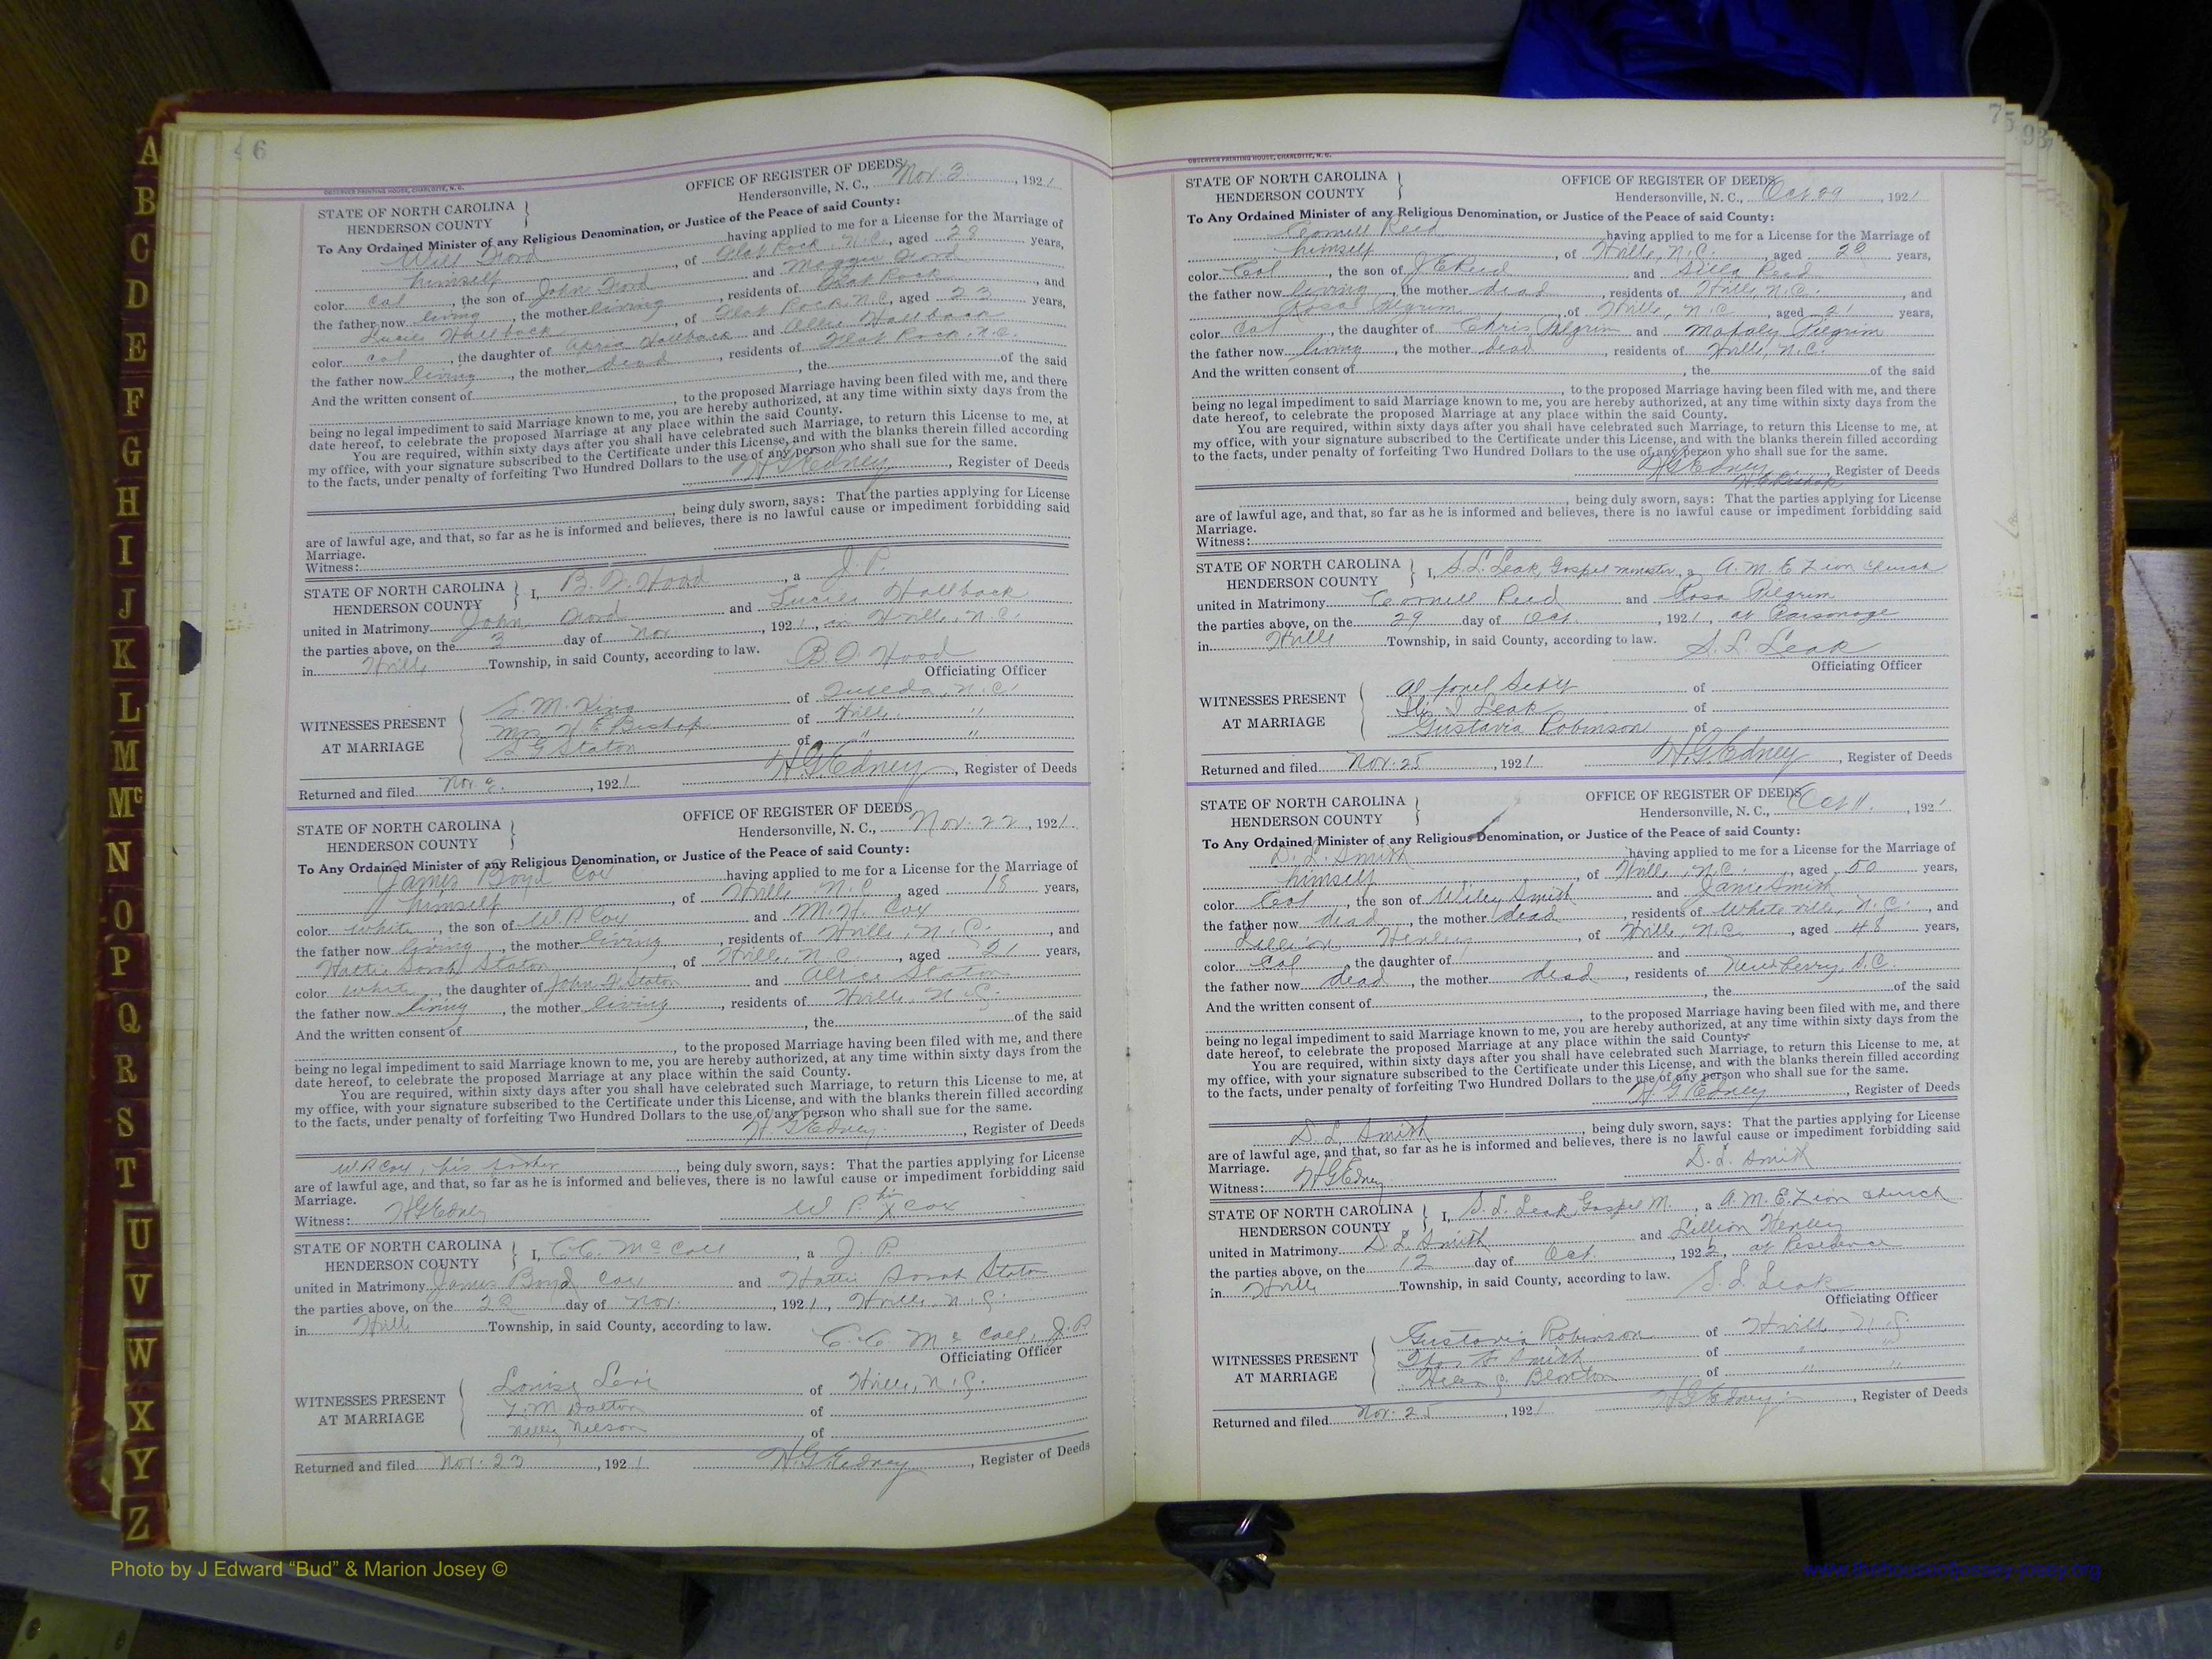 A
B
C
D
E
F
G
H
I
J
K
L
M
Mc
N
O
P
Q
R
S
T
U
V
W
X
Y
Z
46
OBSERVER PRINTING HOUSE, CHARLOTTE, N. C.
OFFICE OF REGISTER OF DEEDS
STATE OF NORTH CAROLINA
HENDERSON COUNTY
Hendersonville, N. C., Nov. 3, 1921
To Any Ordained Minister of any Religious Denomination, or Justice of the Peace of said County:
Will Ford having applied to me for a License for the Marriage of
himself, of Flat Rock, N.C., aged 28 years,
color Col, the son of John Ford and Maggie Ford
the father now living, the mother living, residents of Flat Rock, and
Lucile Hallback, of Flat Rock, N.C., aged 23 years,
color Col, the daughter of Hallback and Ollie Hallback
the father now living, the mother dead, residents of Flat Rock, N.C.
And the written consent of, the of the said
, to the proposed Marriage having been filed with me, and there
being no legal impediment to said Marriage known to me, you are hereby authorized, at any time within sixty days from the
date hereof, to celebrate the proposed Marriage at any place within the said County.
You are required, within sixty days after you shall have celebrated such Marriage, to return this License to me, at
my office, with your signature subscribed to the Certificate under this License, and with the blanks therein filled according
to the facts, under penalty of forfeiting Two Hundred Dollars to the use of any person who shall sue for the same.
H G Edney, Register of Deeds
, being duly sworn, says: That the parties applying for License
are of lawful age, and that, so far as he is informed and believes, there is no lawful cause or impediment forbidding said
Marriage.
Witness:
STATE OF NORTH CAROLINA
HENDERSON COUNTY
I, B. F. Hood, a J. P.
united in Matrimony John Ford and Lucile Hallback
the parties above, on the 3 day of Nov., 1921, in Hville, N.C.
in Hville Township, in said County, according to law.
B. F. Hood
Officiating Officer
WITNESSES PRESENT
AT MARRIAGE
S. M. King of Tuxedo, N.C.
Mrs H E Bishop of Hville "
S G Staton of " "
Returned and filed Nov., 1921 H.G. Edney, Register of Deeds
OFFICE OF REGISTER OF DEEDS
STATE OF NORTH CAROLINA
HENDERSON COUNTY
Hendersonville, N. C., Nov. 22, 1921.
To Any Ordained Minister of any Religious Denomination, or Justice of the Peace of said County:
James Boyd Cox having applied to me for a License for the Marriage of
himself, of Hville, N.C., aged 18 years,
color white, the son of W.P. Cox and M. H. Cox
the father now living, the mother living, residents of Hville, N.C., and
Hattie Sarah Staton, of Hville, N.C., aged 21 years,
color white, the daughter of John H. Staton and Alice Staton
the father now living, the mother living, residents of Hville, N.C.
And the written consent of, the of the said
, to the proposed Marriage having been filed with me, and there
being no legal impediment to said Marriage known to me, you are hereby authorized, at any time within sixty days from the
date hereof, to celebrate the proposed Marriage at any place within the said County.
You are required, within sixty days after you shall have celebrated such Marriage, to return this License to me, at
my office, with your signature subscribed to the Certificate under this License, and with the blanks therein filled according
to the facts, under penalty of forfeiting Two Hundred Dollars to the use of any person who shall sue for the same.
H. G Edney, Register of Deeds
W P Cox, his father, being duly sworn, says: That the parties applying for License
are of lawful age, and that, so far as he is informed and believes, there is no lawful cause or impediment forbidding said
Marriage.
Witness: H G Edney W P his X Cox
STATE OF NORTH CAROLINA
HENDERSON COUNTY
I, C.C. McCall, a J. P.
united in Matrimony James Boyd Cox and Hattie Sarah Staton
the parties above, on the 22 day of Nov., 1921, Hville, N.C.
in Hville Township, in said County, according to law.
C. C. McCall, J.P.
Officiating Officer
WITNESSES PRESENT
AT MARRIAGE
Louise Levi of Hville, N.C.
T. M. Dalton of
Nelly Nelson of
Returned and filed Nov. 23, 1921 H. G. Edney, Register of Deeds
75
93
OBSERVER PRINTING HOUSE, CHARLOTTE, N. C.
STATE OF NORTH CAROLINA
HENDERSON COUNTY
OFFICE OF REGISTER OF DEEDS
Hendersonville, N. C., Oct 29, 1921
To Any Ordained Minister of any Religious Denomination, or Justice of the Peace of said County:
Cornell Reed having applied to me for a License for the Marriage of
himself, of Hville, N.C., aged years,
color Col, the son of J E Reed and Silla Reed
the father now living, the mother dead, residents of Hville, N.C., and
Rosa Pilgrim, of Hville, N.C., aged 21 years,
color Col, the daughter of Chris Pilgrim and Mahaley Pilgrim
the father now living, the mother dead, residents of Hville, N.C.
And the written consent of, the of the said
, to the proposed Marriage having been filed with me, and there
being no legal impediment to said Marriage known to me, you are hereby authorized, at any time within sixty days from the
date hereof, to celebrate the proposed Marriage at any place within the said County.
You are required, within sixty days after you shall have celebrated such Marriage, to return this License to me, at
my office, with your signature subscribed to the Certificate under this License, and with the blanks therein filled according
to the facts, under penalty of forfeiting Two Hundred Dollars to the use of any person who shall sue for the same.
H G Edney, Register of Deeds
H. E. Bishop
, being duly sworn, says: That the parties applying for License
are of lawful age, and that, so far as he is informed and believes, there is no lawful cause or impediment forbidding said
Marriage.
Witness:
STATE OF NORTH CAROLINA
HENDERSON COUNTY
I, S.L. Leak, Gospel minister, a A. M. E Zion Church
united in Matrimony Cornell Reed and Rosa Pilgrim
the parties above, on the 29 day of Oct., 1921, at Parsonage
in Hville Township, in said County, according to law.
S. L. Leak
Officiating Officer
WITNESSES PRESENT
AT MARRIAGE
of
Leak of
Gustavia Robinson of
Returned and filed Nov. 25, 1921 H.G. Edney, Register of Deeds
STATE OF NORTH CAROLINA
HENDERSON COUNTY
OFFICE OF REGISTER OF DEEDS
Hendersonville, N. C., Oct 11., 1921
To Any Ordained Minister of any Religious Denomination, or Justice of the Peace of said County:
D. L. Smith having applied to me for a License for the Marriage of
himself, of Hville, N.C., aged 50 years,
color Col, the son of Wiley Smith and Janie Smith
the father now dead, the mother dead, residents of Whiteville, N.C., and
Lillion Henley, of Hville, N.C., aged 48 years,
color Col, the daughter of and
the father now dead, the mother dead, residents of Newberry, S.C.
And the written consent of, the of the said
, to the proposed Marriage having been filed with me, and there
being no legal impediment to said Marriage known to me, you are hereby authorized, at any time within sixty days from the
date hereof, to celebrate the proposed Marriage at any place within the said County.
You are required, within sixty days after you shall have celebrated such Marriage, to return this License to me, at
my office, with your signature subscribed to the Certificate under this License, and with the blanks therein filled according
to the facts, under penalty of forfeiting Two Hundred Dollars to the use of any person who shall sue for the same.
H. G Edney, Register of Deeds
D. L. Smith, being duly sworn, says: That the parties applying for License
are of lawful age, and that, so far as he is informed and believes, there is no lawful cause or impediment forbidding said
Marriage.
D. L. Smith
Witness: H G Edney
STATE OF NORTH CAROLINA
HENDERSON COUNTY
I, S. L. Leak, Gospel M., a A. M. E. Zion Church
united in Matrimony D. L. Smith and Lillion Henley
the parties above, on the 12 day of Oct., 1922, at Residence
in Hville Township, in said County, according to law.
S. L. Leak
Officiating Officer
WITNESSES PRESENT
AT MARRIAGE
Gustavia Robinson of Hville, N.C.
Thos F. Smith of " "
Helen Blanton of " "
Returned and filed Nov. 25, 1921 H G Edney, Register of Deeds
Photo by J Edward “Bud” & Marion Josey ©
www.thehouseofjossey-josey.org